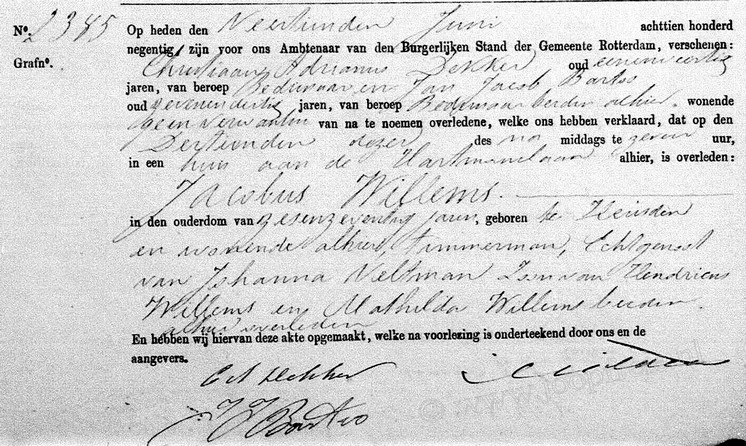 No. 2385 Op heden den Veertienden Juni achttien honderd
negentig, zijn voor ons Ambtenaar van den Burgerlijken Stand der Gemeente Rotterdam, verschenen:
Grafno. Christiaan Adrianus Dekker oud eenenveertig
jaren, van beroep Bedienaar en Jan Jacob Bartos
oud zevenendertig jaren, van beroep Bedienaar beiden alhier wonende
geen verwanten van na te noemen overledene, welke ons hebben verklaard, dat op den
Dertienden dezer des na middags te zeven uur,
in een huis aan de alhier, is overleden:
Jacobus Willems.
in den ouderdom van zesenzeventig jaren, geboren te Heusden
en wonende alhier, Timmerman, Echtgenoot
van Johanna Veltman Zoon van Hendricus
Willems en Mathilda Willems beiden
alhier overleden
En hebben wij hiervan deze akte opgemaakt, welke na voorlezing is onderteekend door ons en de
aangevers.
C A Dekker
J J Bartos